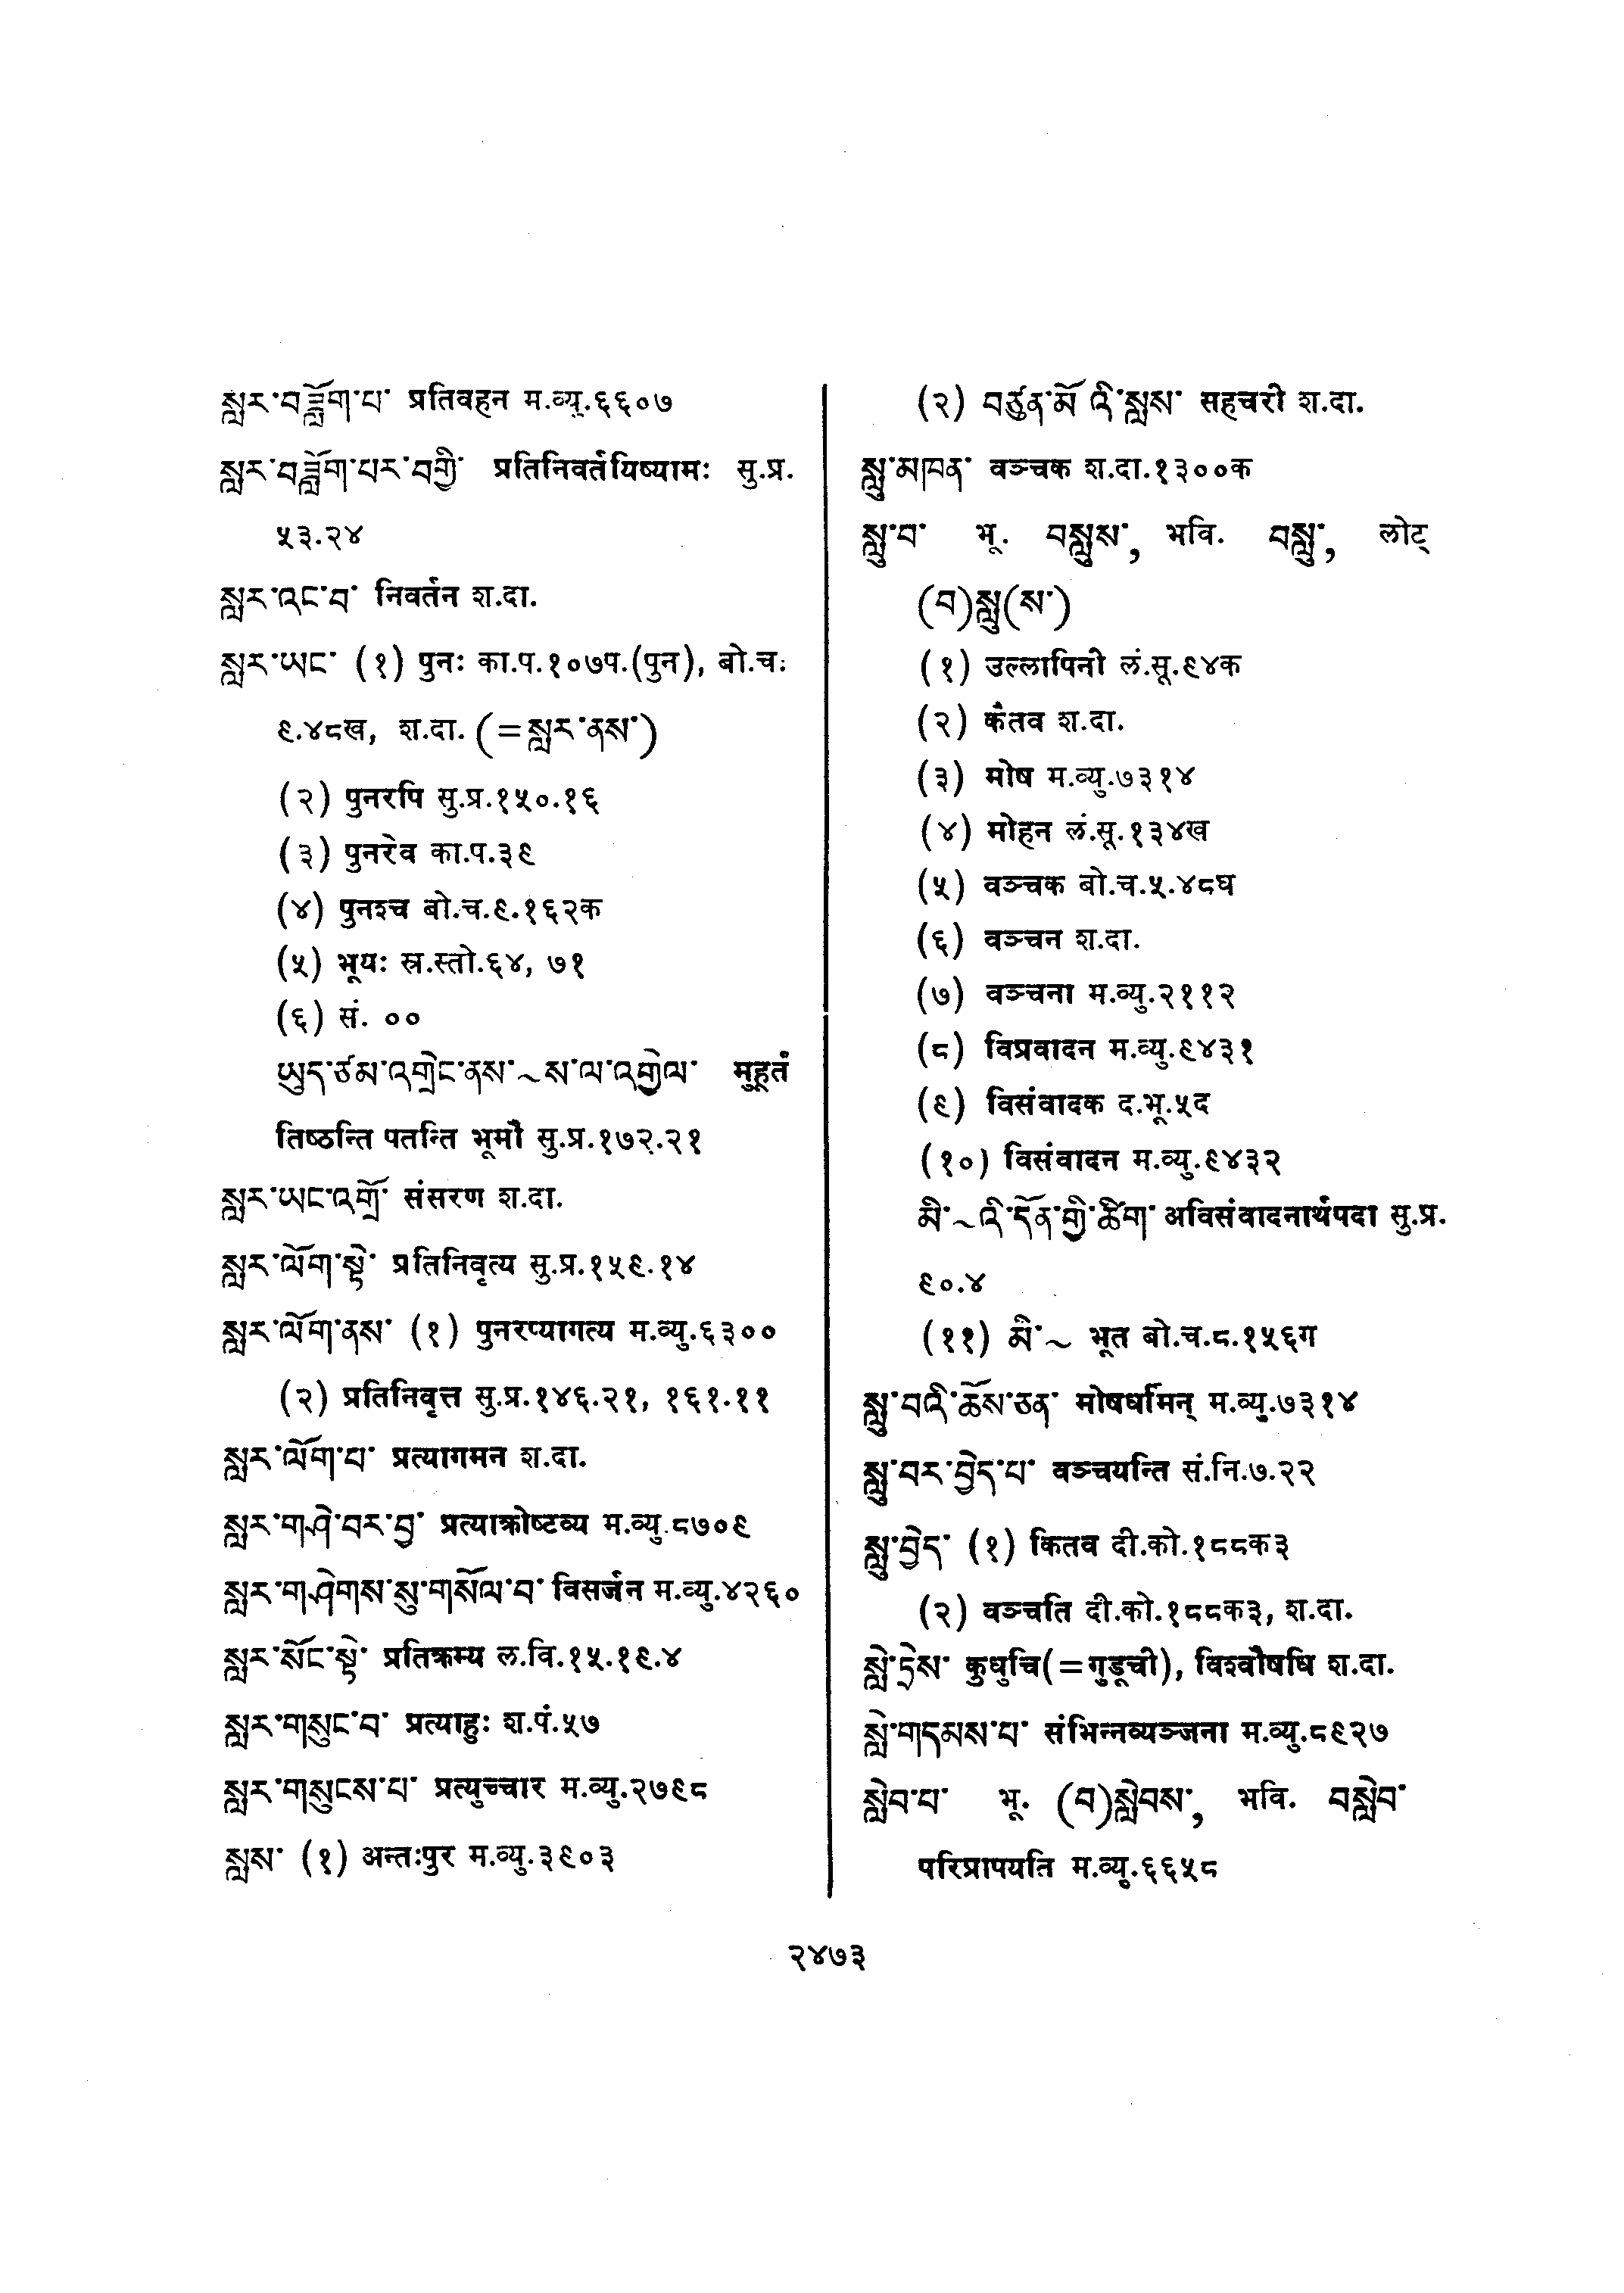 སླར་བཟློག་པ་ प्रतिवहन म.व्यु.६६०७
སླར་བཟློག་པར་བགྱི་ प्रतिनिवर्तयिष्यामः सु.प्र.
५३.२४
སླར་འང་བ་ निवर्तन श.दा.
སླར་ཡང་ (१) पुनः का.प.१०७प.(पुन), बो.च.
९.४८ख, श.दा. (=སླར་ནས་)
(२) पुनरपि सु.प्र.१५०.१६
(३) पुनरेव का.प.३९
(४) पुनश्च बो.च.९.१६२क
(५) भूयः स्र.स्तो.६४, ७१
(६) सं. ००
ཡུད་ཙམ་འགྲེང་ནས་~ས་ལ་འགྱེལ་ मुहूर्तं
तिष्ठन्ति पतन्ति भूमौ सु.प्र.१७२.२१
སླར་ཡང་འགྲོ་ संसरण श.दा.
སླར་ལོག་སྟེ་ प्रतिनिवृत्य सु.प्र.१५९.१४
སླར་ལོག་ནས་ (१) पुनरप्यागत्य म.व्यु.६३००
(२) प्रतिनिवृत्त सु.प्र.१४६.२१, १६१.११
སླར་ལོག་པ་ प्रत्यागमन श.दा.
སླར་གཤེ་བར་བྱ་ प्रत्याक्रोष्टव्य म.व्यु.८७०९
སླར་གཤེགས་སུ་གསོལ་བ་ विसर्जन म.व्यु.४२६०
སླར་སོང་སྟེ་ प्रतिक्रम्य ल.वि.१५.१९.४
སླར་གསུང་བ་ प्रत्याहुः श.पं.५७
སླར་གསུངས་པ་ प्रत्युच्चार म.व्यु.२७९८
སླས་ (१) अन्तःपुर म.व्यु.३९०३
(२) བཙུན་མོ་འི་སླས་ सहचरी श.दा.
སླུ་མཁན་ वञ्चक श.दा.१३००क
སླུ་བ་ भू. བསླུས་, भवि. བསླུ་, लोट्
(བ)སླུ(ས་)
(१) उल्लापिनी लं.सू.९४क
(२) कैतव श.दा.
(३) मोष म.व्यु.७३१४
(४) मोहन लं.सू.१३४ख
(५) वञ्चक बो.च.५.४८घ
(६) वञ्चन श.दा.
(७) वञ्चना म.व्यु.२११२
(८) विप्रवादन म.व्यु.९४३१
(९) विसंवादक द.भू.५द
(१०) विसंवादन म.व्यु.९४३२
མི་~འི་དོན་གྱི་ཚིག་ अविसंवादनार्थपदा सु.प्र.
९०.४
(११) མི་~ भूत बो.च.८.१५६ग
སླུ་བའི་ཆོས་ཅན་ मोषधर्मिन् म.व्यु.७३१४
སླུ་བར་བྱེད་པ་ वञ्चयन्ति सं.नि.७.२२
སླུ་བྱེད་ (१) कितव दी.को.१८८क३
(२) वञ्चति दी.को.१८८क३, श.दा.
སླེ་ཏྲེས་ कुधुचि(=गुडूची), विश्वौषधि श.दा.
སླེ་གདམས་པ་ संभिन्नव्यञ्जना म.व्यु.८९२७
སླེབ་པ་ भू. (བ)སླེབས་, भवि. བསླེབ་
परिप्रापयति म.व्यु.६६५८
२४७३